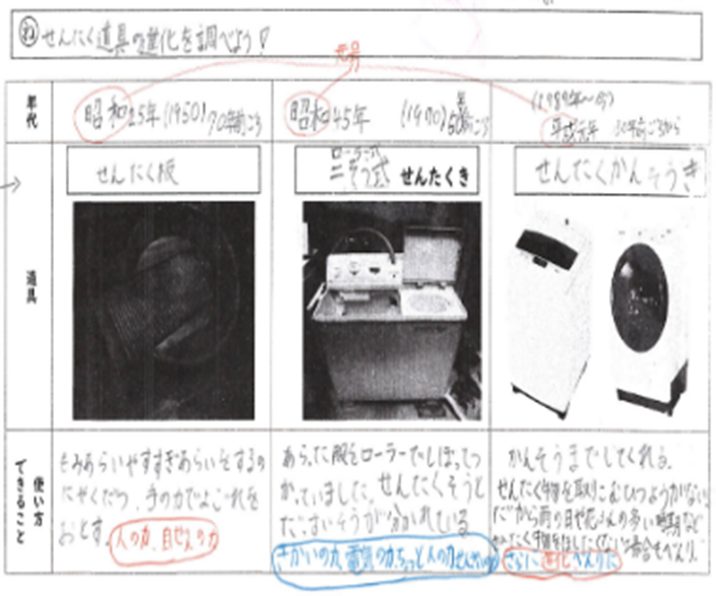 せんたく道具の進化を調べよう!
元号
年代
昭和25年(1950)70年前ごろ
昭和45年 (1970)50年前ごろ
(1989年~今)
平成元年 30年前ごろから
道具
せんたく板
ローラー式
二そう式 せんたくき
せんたくかんそうき
使い方
できること
もみあらいやすすぎあらいをするの
にやくだつ。手の力でよごれを
おとす。
人の力、自ぜんの力
あらった服をローラーでしぼってつ
かっていました。せんたくそうと
だっすいそうが分かれている
きかいの力、電気の力、ちょっと人の力
かんそうまでしてくれる。
せんたく物を取りこむひつようがない。
だから雨の日や花ふんの多い時期など
せんたく物をほしたくない場合もべんり。
さらに進化 べんりに